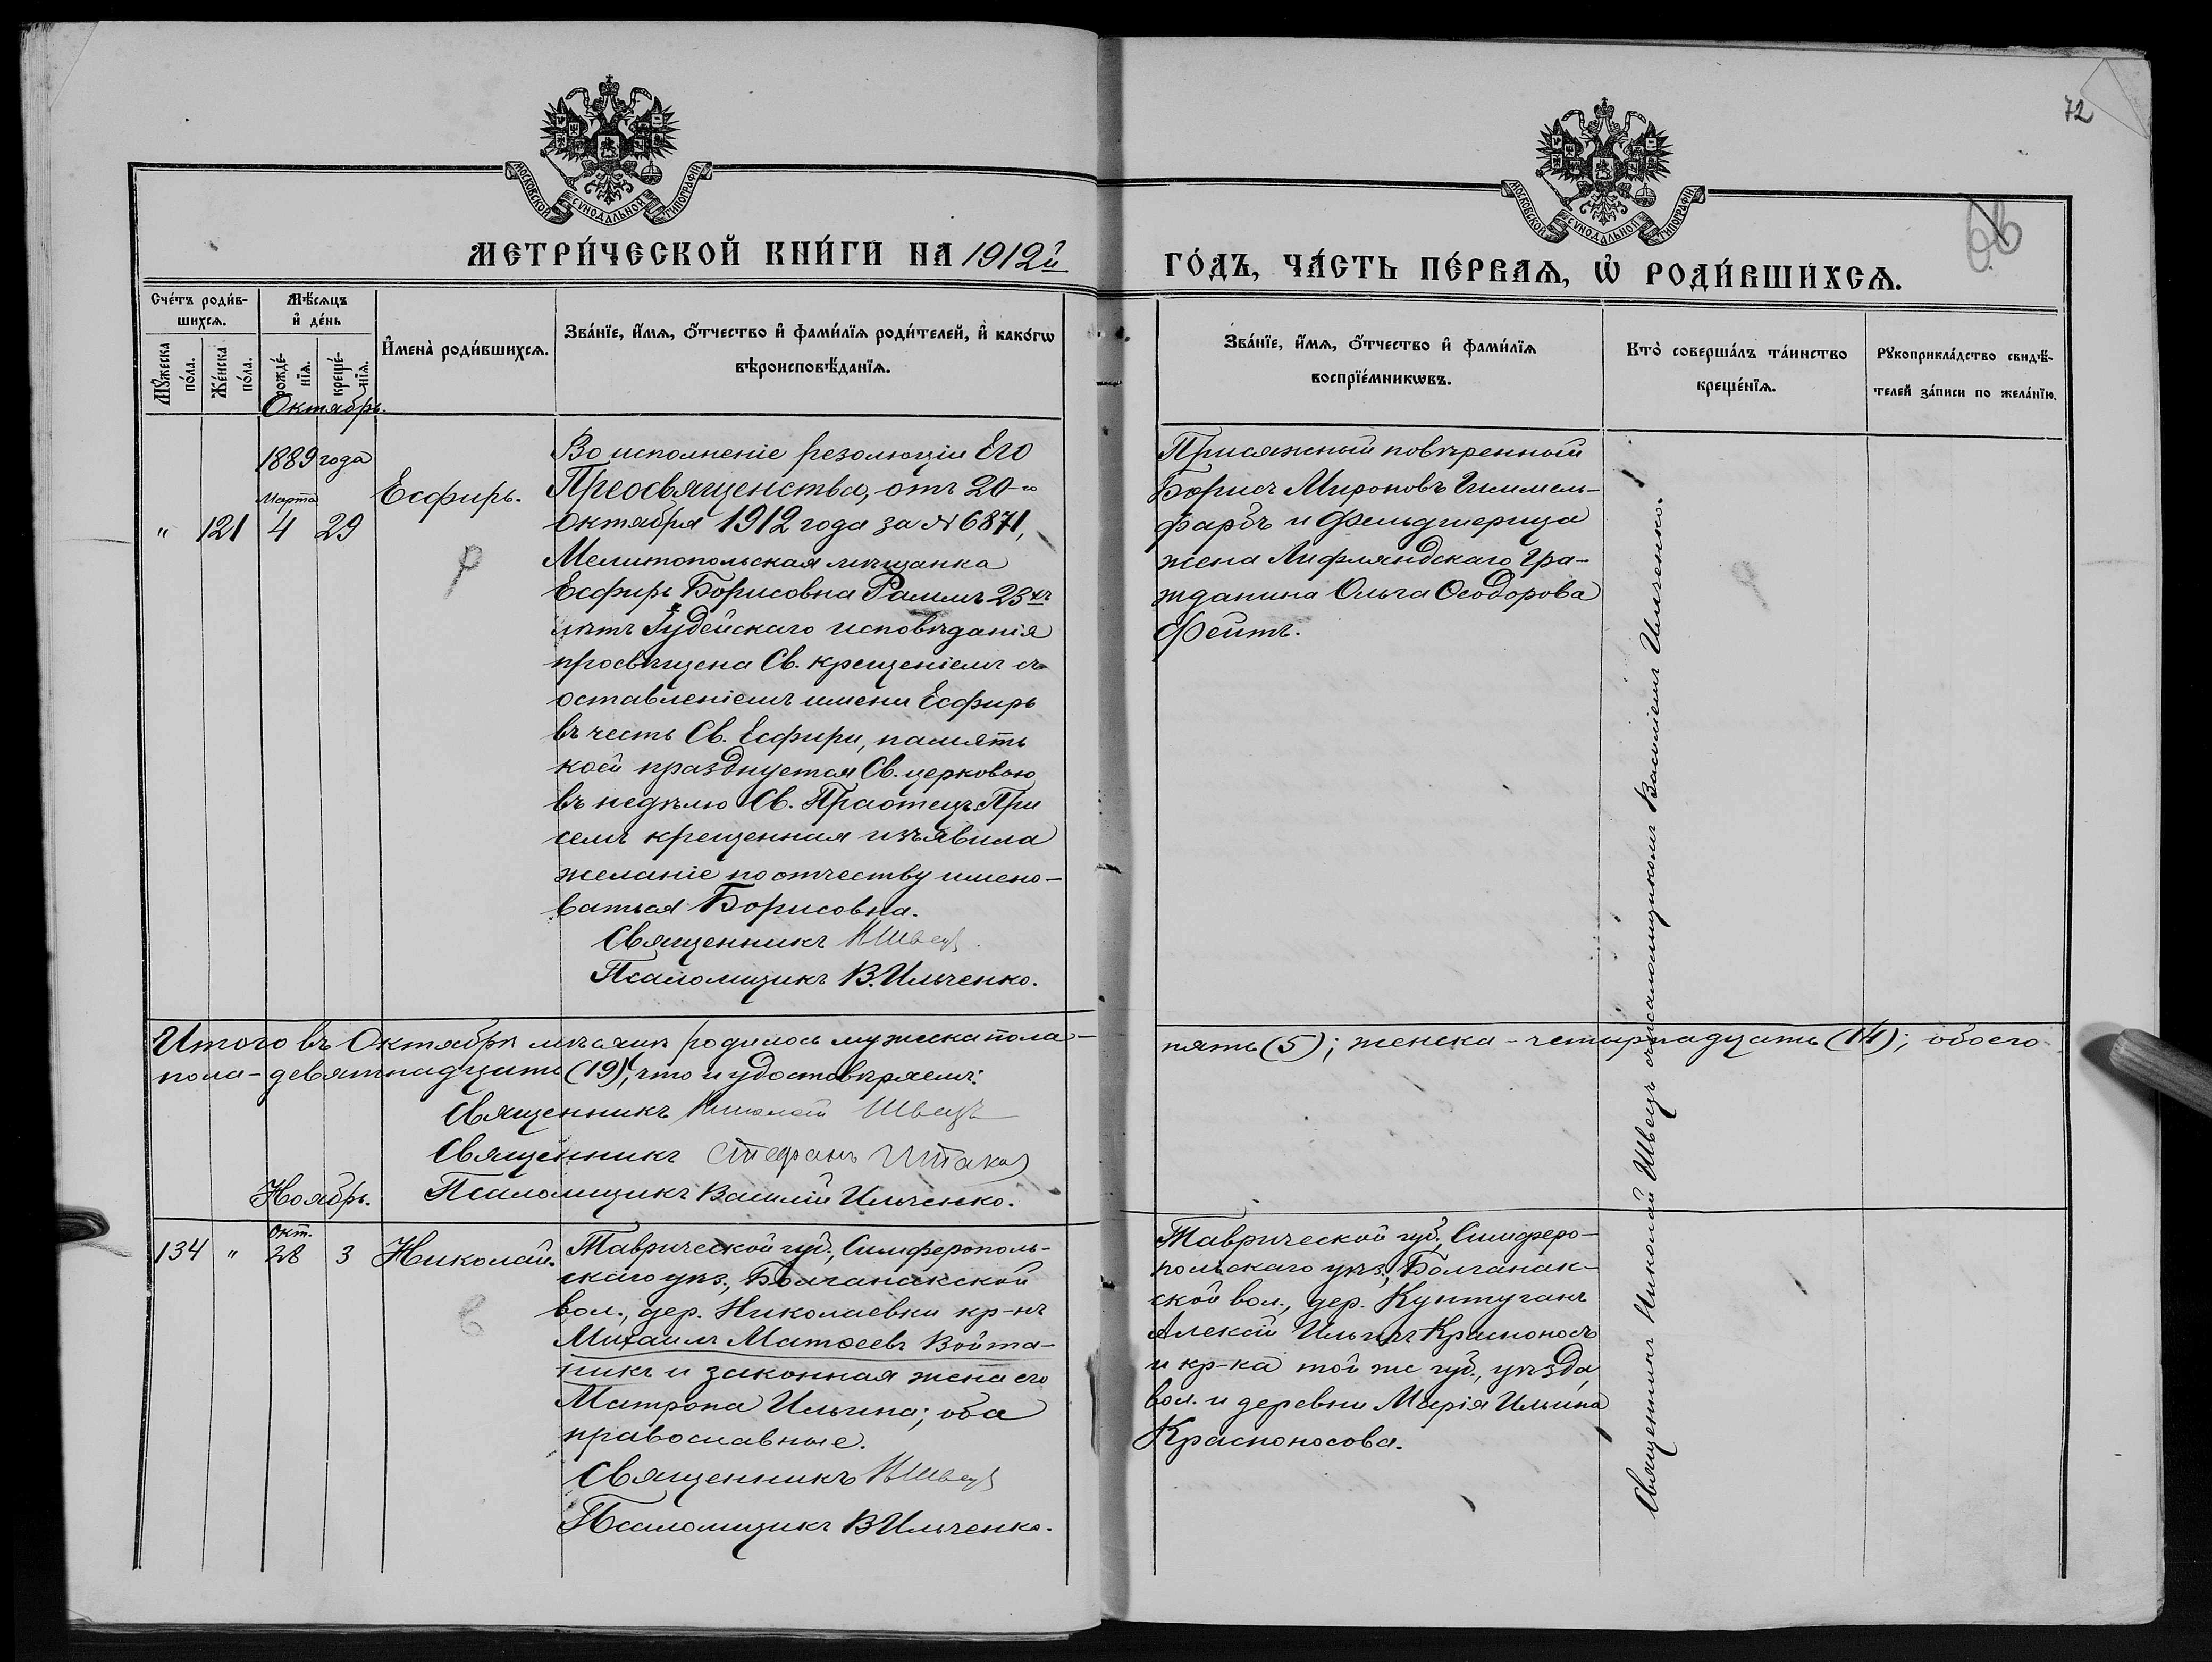 72
66
МОСКОВСКОЙ СѴНОДАЛЬНОЙ ТИПОГРАФІИ
МОСКОВСКОЙ СѴНОДАЛЬНОЙ ТИПОГРАФІИ
МЕТРИ́ЧЕСКОЙ КНИ́ГИ НА 1912й
ГО́ДЪ, ЧА́СТЬ ПЕ́РВАѦ, Ѡ҆ РОДИ́ВШИХСѦ.
Сче́тъ роди́в-
шихсѧ.
Мꙋ́жеска по́ла.
Же́нска по́ла.
Мѣ́сѧцъ
и҆ де́нь
рожде́-
нїѧ.
креще́-
нїѧ.
И҆мена̀ роди́вшихсѧ.
Зва́нїе, и҆́мѧ, ѻ҆́тчество и҆ фами́лїѧ роди́телей, и҆ како́гѡ
вѣроисповѣ́данїѧ.
Зва́нїе, и҆́мѧ, ѻ҆́тчество и҆ фами́лїѧ
воспрїе́мникѡвъ.
Кто̀ соверша́лъ та́инство
креще́нїѧ.
Рꙋкоприкла́дство свидѣ́-
телей за́писи по жела́нїю.
Октябрь.
" 121
1889 года
Марта
4 29
Есфирь.
Во исполненіе резолюціи Его
Преосвященства, отъ 20-го
Октября 1912 года за № 6871,
Мелитопольская мѣщанка
Есфирь Борисовна Раммъ 23хъ
лѣтъ Іудейскаго исповѣданія
просвѣщена Св. крещеніемъ съ
оставленіемъ имени Есфирь
въ честь Св. Есфири, память
коей празднуется Св. церковью
въ недѣлю Св. Праотецъ. При
семъ крещенная изъявила
желаніе по отчеству имено-
ваться Борисовна.
Священникъ Н Швецъ
Псаломщикъ В. Ильченко.
Присяжный повѣренный
Борисъ Мироновъ Гиммель-
фарбъ и Фельдшерица
жена Лифляндскаго Гра-
жданина Ольга Ѳеодорова
Фейтъ.
Священникъ Николай Швецъ съ псаломщикомъ Василіемъ Ильченко.
Итого въ Октябрѣ мѣсяцѣ родилось мужеска пола-
пять (5); женска - четырнадцать (14); обоего
пола - девятнадцать (19), что и удостовѣряемъ:
Священникъ Николай Швецъ
Священникъ Стефанъ
Псаломщикъ Василій Ильченко.
Ноябрь.
134 "
Окт.
28 3
Николай.
Таврической губ., Симферополь-
скаго уѣз., Болганакской
вол., дер. Николаевки кр-нъ
Михаилъ Матѳеевъ Войта-
никъ и законная жена его
Матрона Ильина; оба
православные.
Священникъ Н Швецъ
Псаломщикъ В Ильченко.
Таврической губ., Симферо-
польскаго уѣз., Болганак-
ской вол., дер. Кунтуганъ
Алексій Ильинъ Красноносъ
и кр-ка той же губ., уѣзда,
вол. и деревни Марія Ильина
Красноносова.